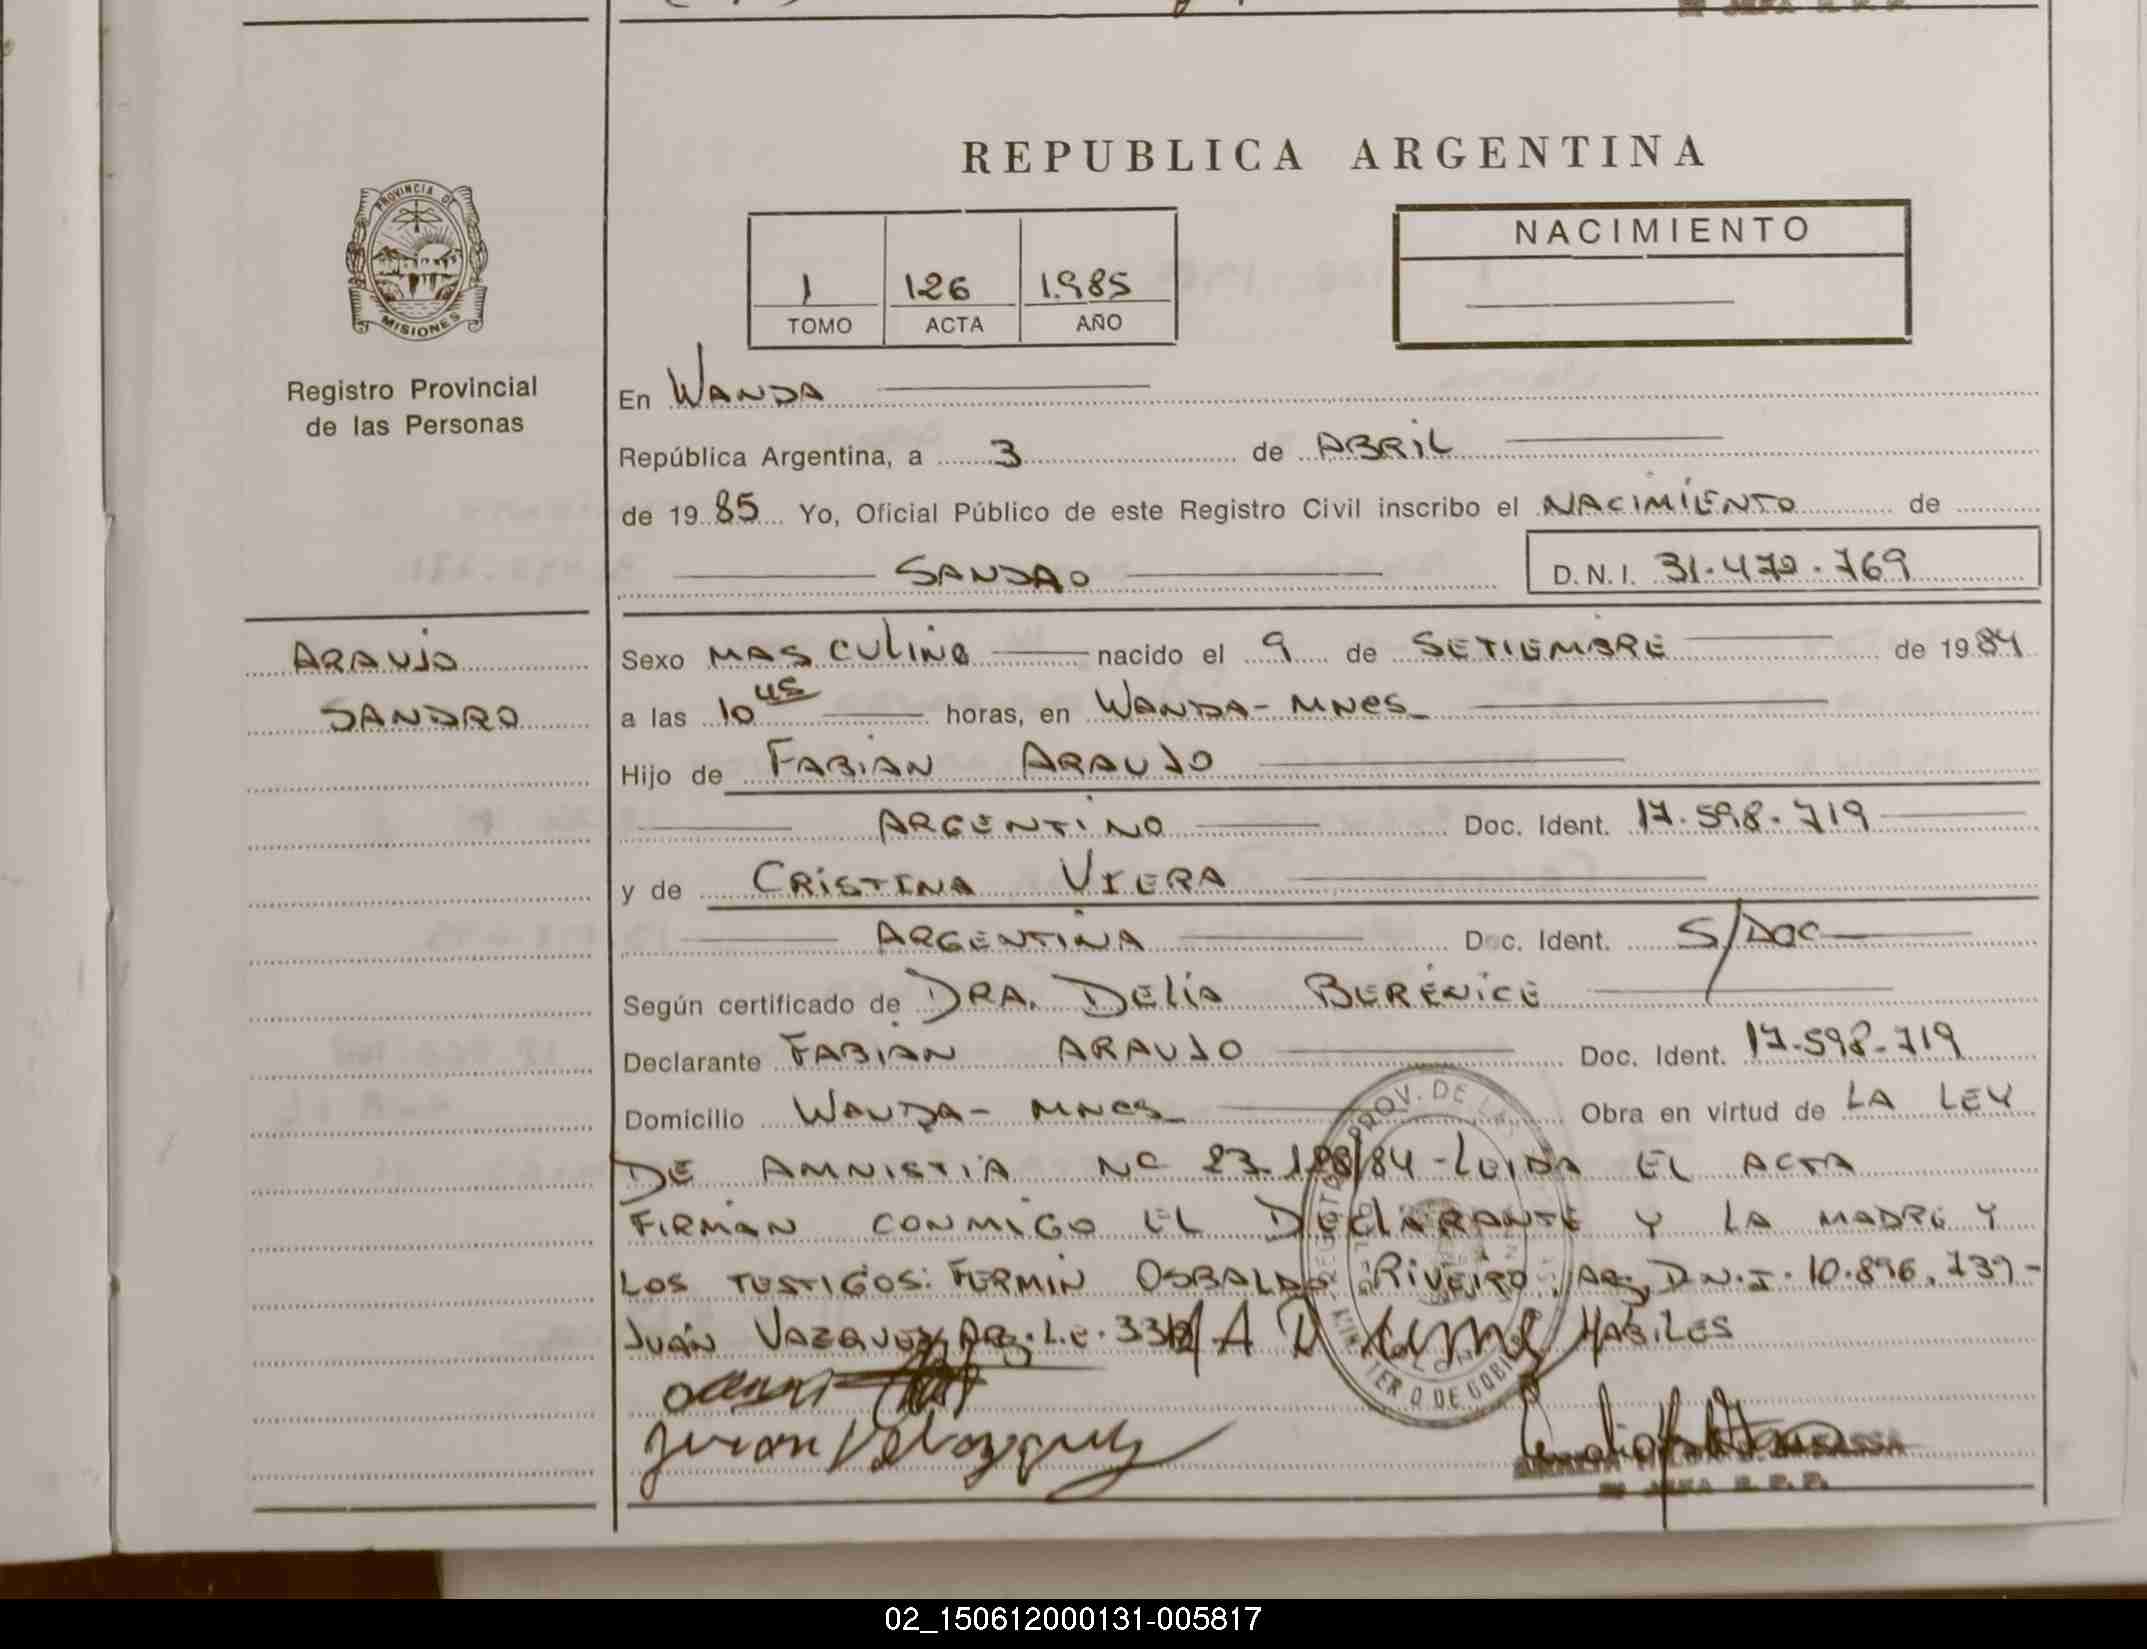 REPUBLICA ARGENTINA
PROVINCIA DE
MISIONES
Registro Provincial
de las Personas
1 126 1985
TOMO ACTA AÑO
NACIMIENTO
En WANDA
República Argentina, a 3 de ABRIL
de 1985 Yo, Oficial Público de este Registro Civil inscribo el NACIMIENTO de
SANDRO
D.N.I. 31.470.769
ARAUJO
SANDRO
Sexo MASCULINO nacido el 9 de SETIEMBRE de 1984
a las 10 45 horas, en WANDA - MNES
Hijo de FABIAN ARAUJO
ARGENTINO Doc. Ident. 17.598.719
y de CRISTINA VIERA
ARGENTINA Doc. Ident. S/DOC
Según certificado de DRA. DELIA BERENICE
Declarante FABIAN ARAUJO Doc. Ident. 17.598.719
Domicilio WANDA - MNES Obra en virtud de LA LEY
DE AMNISTIA Nº 23. /84 - LEIDA EL ACTA
FIRMAN CONMIGO EL DECLARANTE Y LA MADRE Y
LOS TESTIGOS: FERMIN OSBALDO RIVEIRO, AR, D.N.I. 10.896.739 -
JUAN VAZQUEZ AR. L.E. HABILES
Juan Velazquez
02_150612000131-005817